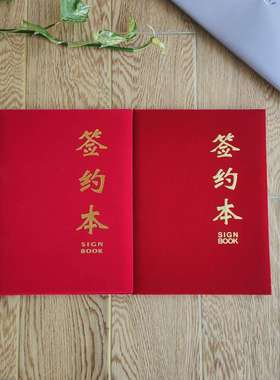 签约本
SIGN
BOOK
签约本
SIGN
BOOK